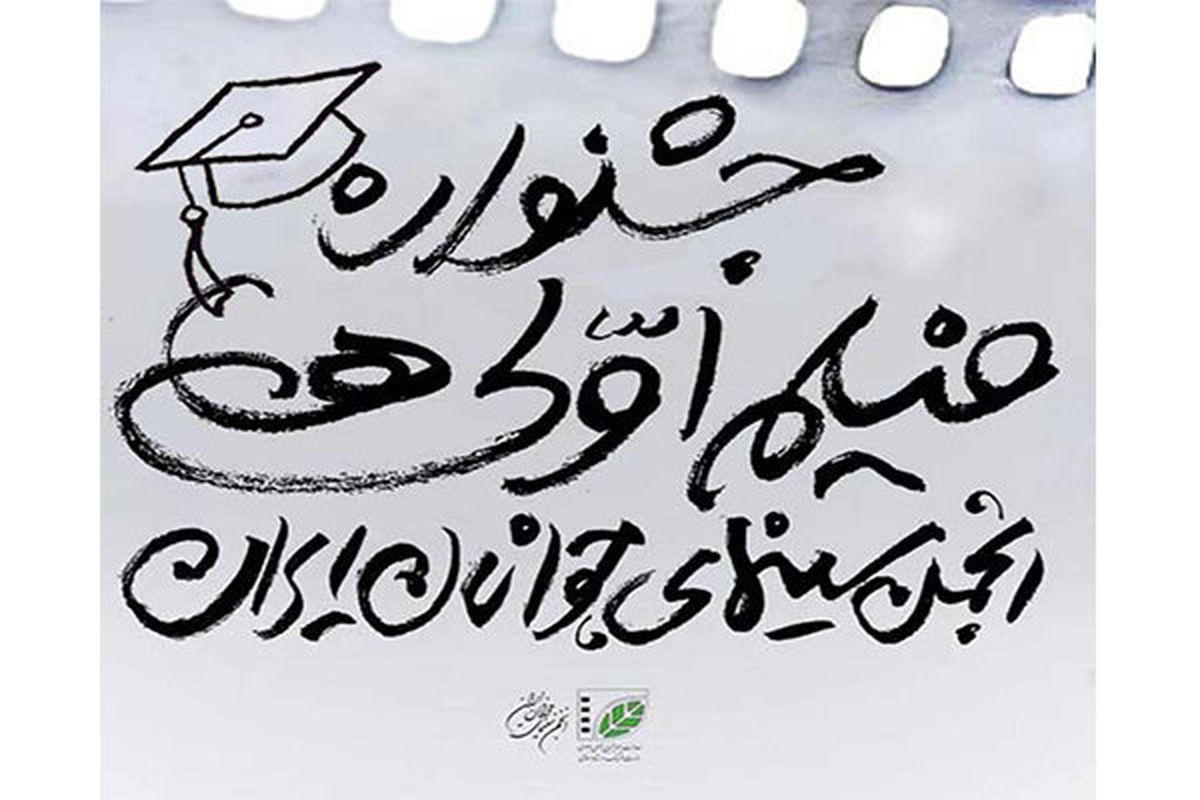 جشنواره
فیلم اوّلی ها
انجمن سینمای جوانان ایران
انجمن سینمای جوانان ایران